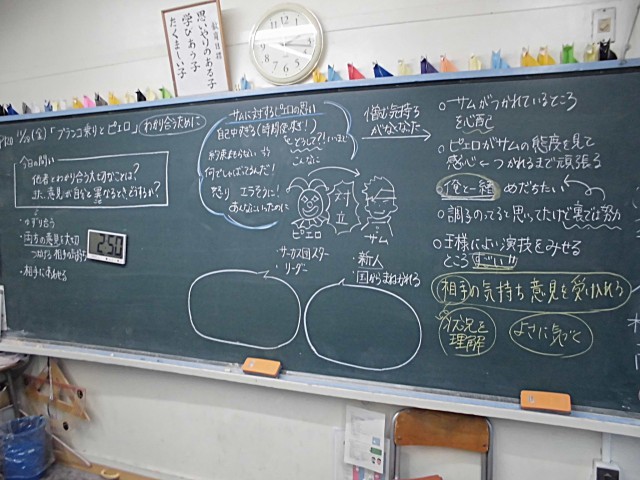 教育目標
思いやりのある子
学びあう子
たくましい子
「ブランコ乗りとピエロ」 わかり合うために
今日の問い
他者とわかり合う大切なことは?
また意見が自分と異なるとき、どうするか?
・ゆずり合う
・両方の意見を大切
相手の気持ち
・相手に
2:50
サムに対するピエロの思い
自己中すぎる(時間
何でしゃばってるんだ!
怒り エラそうに!
あんなにいったのに
対立
ピエロ
サム
・サーカス団スター
・リーダー
・新人
・国からまねかれる
憎む気持ち
がなくなった
○サムがつかれているところ
を心配
○ピエロがサムの態度を見て
感心←つかれるまで頑張る
俺と一緒 めだちたい
○調子のってると思ってたけど裏では努力
○王様によい演技をみせる
ところ すごい!!
相手の気持ち意見を受け入れる
状況を
理解
よさに気づく